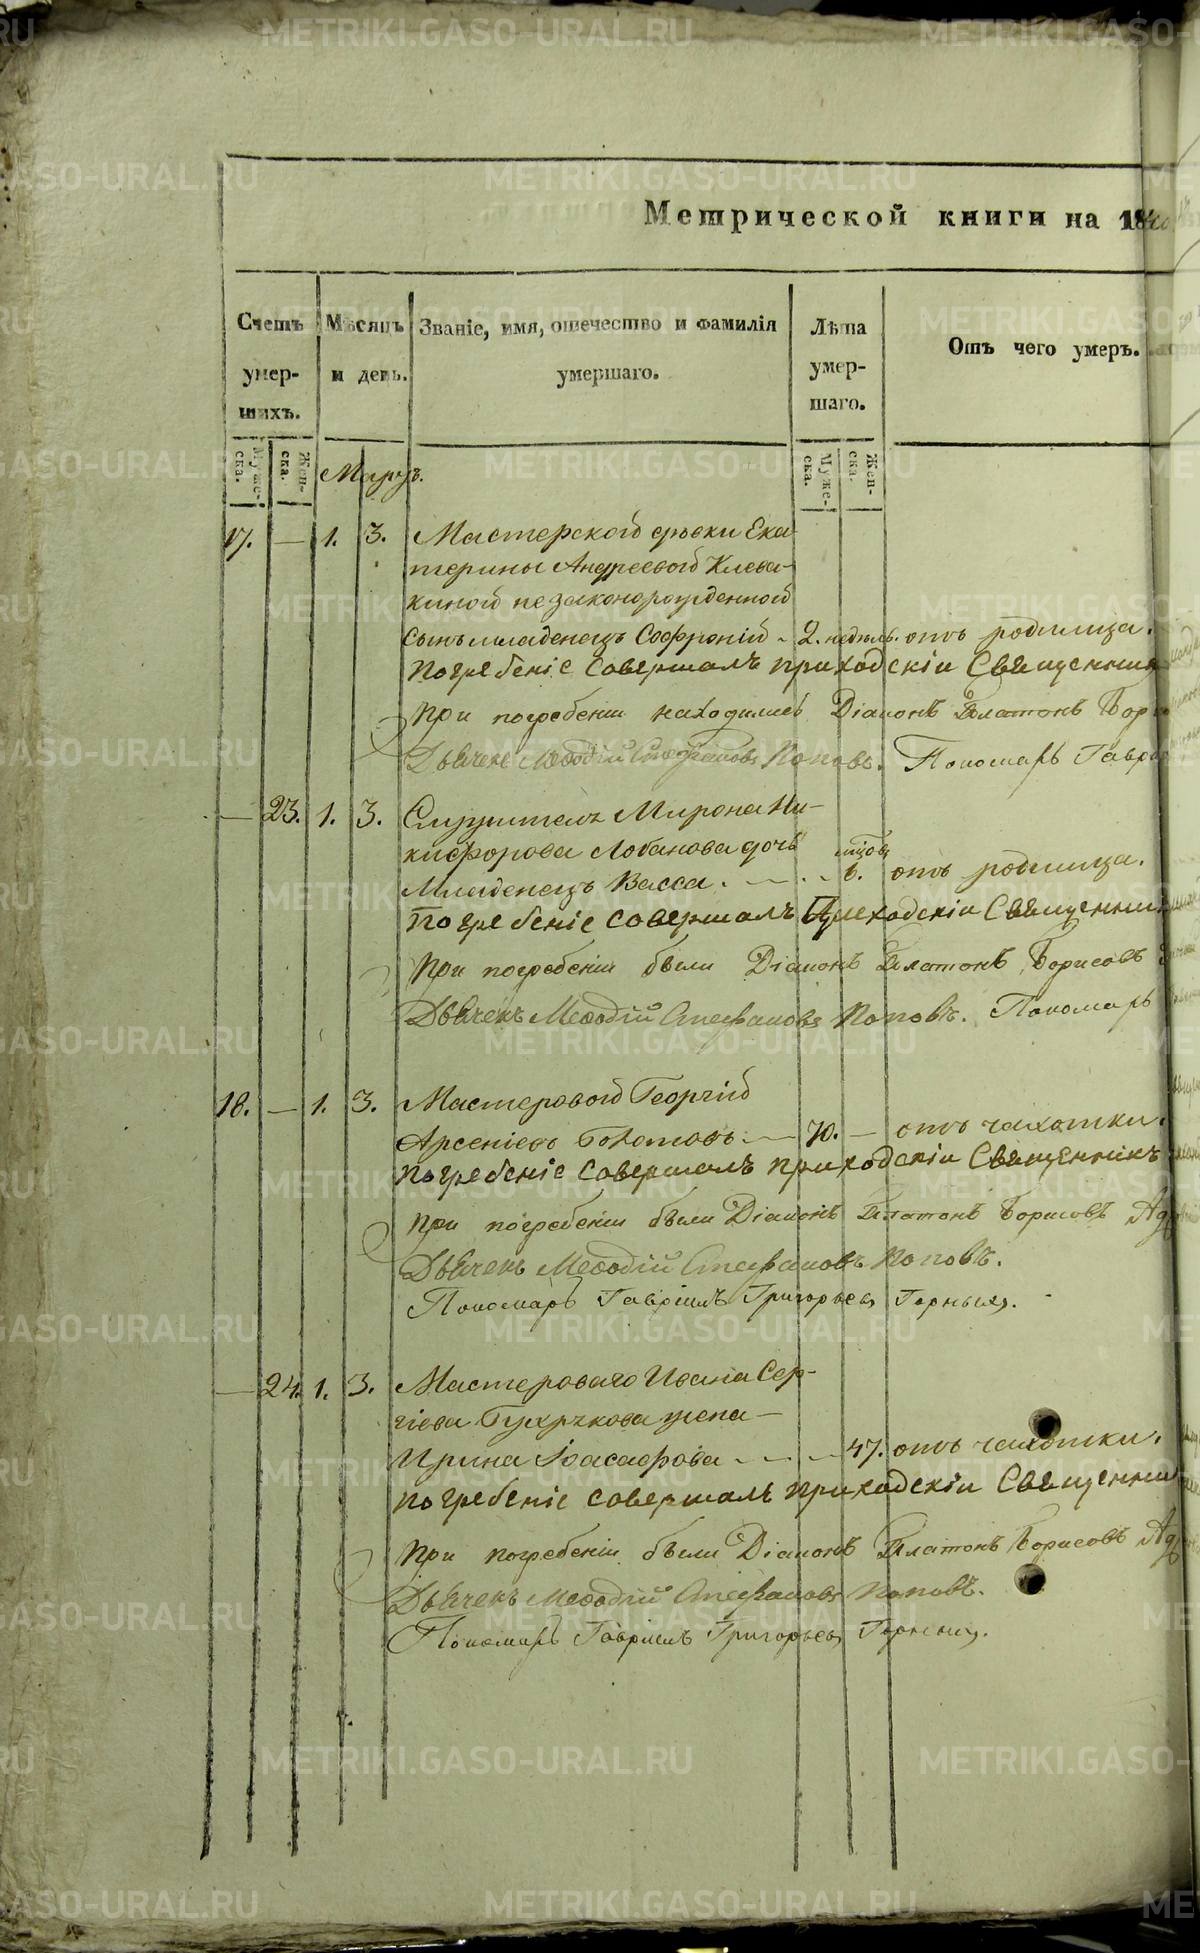 Метрической книги на 18
Счетъ умер-шихъ.
Муже-ска.
Жен-ска.
Мѣсяцъ и день.
Званіе, имя, отечество и фамилія умершаго.
Лѣта умер-шаго.
Муже-ска.
Жен-ска.
Отъ чего умеръ.
Мартъ.
17. — 1. 3. Мастерской дѣвки Ека-
терины Андреевой Клева-
киной незаконорожденной
сынъ младенецъ Софроній - 2. недѣль. отъ родимца.
Погребеніе совершалъ приходскіи Священник
при погребеніи находились Діаконъ Платонъ Бори
Дьячекъ Меѳодій Стефановъ Поповъ. Пономарь Гаврі
— 23. 1. 3. Служителя Мирона Ни-
кифорова Лобанова дочь
Младенецъ Васса. 6. отъ родимца.
Погребеніе совершалъ Приходскіи Священник
При погребеніи были Діаконъ Платонъ Борисовъ
Дьячекъ Меѳодій Стефановъ Поповъ. Пономарь
18. — 1. 3. Мастеровой Георгій
Арсеніевъ 70. — отъ чахотки.
Погребеніе совершалъ приходскіи Священникъ
при погребеніи были Діаконъ Платонъ Борисовъ
Дьячекъ Меѳодій Стефановъ Поповъ.
Пономарь Гавріилъ Григорьевъ Горныхъ.
— 24. 1. 3. Мастероваго Ивана Сер-
гіева жена
Ирина Іоасафова 47. отъ чахотки.
Погребеніе совершалъ приходскіи Священник
При погребеніи были Діаконъ Платонъ Борисовъ
Дьячекъ Меѳодій Стефановъ Поповъ.
Пономарь Гавріилъ Григорьевъ Горныхъ.
METRIKI.GASO-URAL.RU